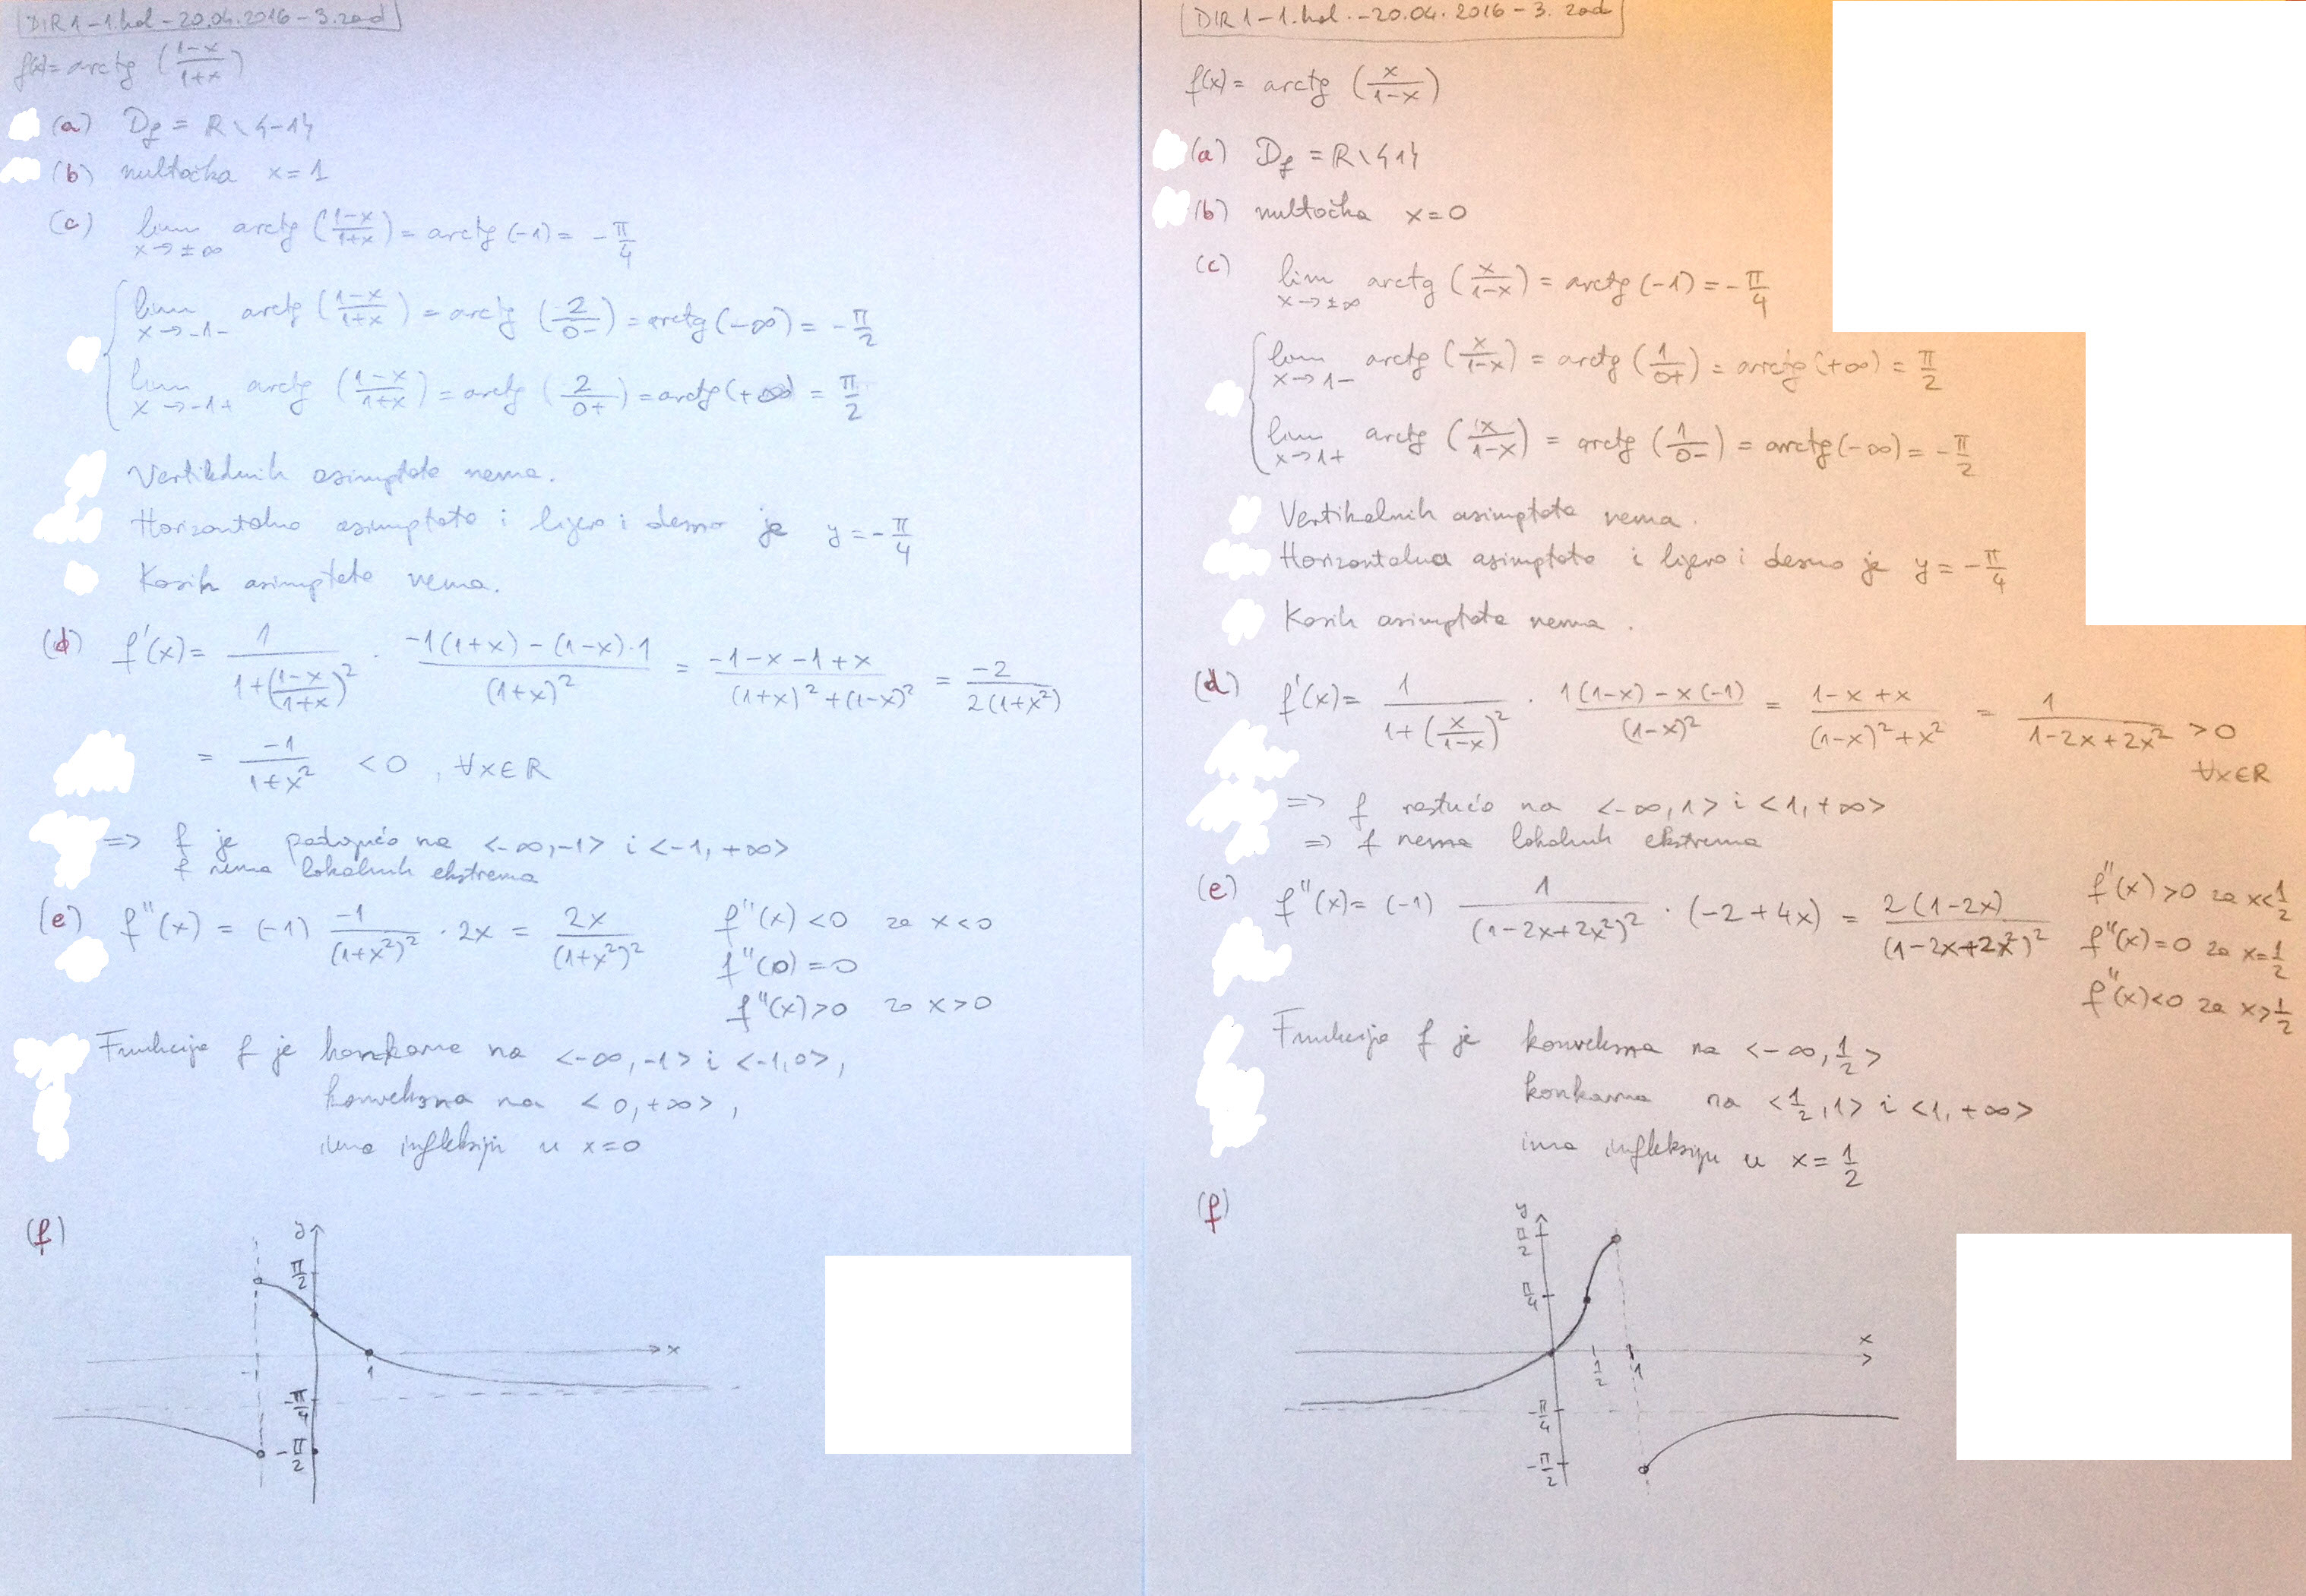 DIR 1 - 1. kol - 20.04.2016 - 3. zad
f(x) = arctg (\frac{1-x}{1+x})
(a) D_f = R \ {-1}
(b) nultočka x = 1
(c) lim_{x→±∞} arctg (\frac{1-x}{1+x}) = arctg (-1) = -\frac{π}{4}
lim_{x→-1-} arctg (\frac{1-x}{1+x}) = arctg (\frac{2}{0-}) = arctg (-∞) = -\frac{π}{2}
lim_{x→-1+} arctg (\frac{1-x}{1+x}) = arctg (\frac{2}{0+}) = arctg (+∞) = \frac{π}{2}
Vertikalnih asimptota nema.
Horizontalna asimptota i lijevo i desno je y = -\frac{π}{4}
Kosih asimptota nema.
(d) f'(x) = \frac{1}{1+(\frac{1-x}{1+x})^2} · \frac{-1(1+x) - (1-x)·1}{(1+x)^2} = \frac{-1-x-1+x}{(1+x)^2+(1-x)^2} = \frac{-2}{2(1+x^2)}
= \frac{-1}{1+x^2} < 0, ∀x∈R
=> f je padajuća na <-∞,-1> i <-1,+∞>
f nema lokalnih ekstrema
(e) f''(x) = (-1) \frac{-1}{(1+x^2)^2} · 2x = \frac{2x}{(1+x^2)^2} f''(x) < 0 za x < 0
f''(0) = 0
f''(x) > 0 za x > 0
Funkcija f je konkavna na <-∞,-1> i <-1,0>,
konveksna na <0,+∞>,
ima infleksiju u x=0
(f)
y
\frac{π}{2}
x
1
-\frac{π}{4}
-\frac{π}{2}
DIR 1 - 1. kol. - 20.04.2016 - 3. zad
f(x) = arctg (\frac{x}{1-x})
(a) D_f = R \ {1}
(b) nultočka x = 0
(c) lim_{x→±∞} arctg (\frac{x}{1-x}) = arctg (-1) = -\frac{π}{4}
lim_{x→1-} arctg (\frac{x}{1-x}) = arctg (\frac{1}{0+}) = arctg (+∞) = \frac{π}{2}
lim_{x→1+} arctg (\frac{x}{1-x}) = arctg (\frac{1}{0-}) = arctg (-∞) = -\frac{π}{2}
Vertikalnih asimptota nema.
Horizontalna asimptota i lijevo i desno je y = -\frac{π}{4}
Kosih asimptota nema.
(d) f'(x) = \frac{1}{1+(\frac{x}{1-x})^2} · \frac{1(1-x) - x(-1)}{(1-x)^2} = \frac{1-x+x}{(1-x)^2+x^2} = \frac{1}{1-2x+2x^2} > 0
∀x∈R
=> f rastuća na <-∞,1> i <1,+∞>
=> f nema lokalnih ekstrema
(e) f''(x) = (-1) \frac{1}{(1-2x+2x^2)^2} · (-2+4x) = \frac{2(1-2x)}{(1-2x+2x^2)^2}
f''(x) > 0 za x < \frac{1}{2}
f''(x) = 0 za x = \frac{1}{2}
f''(x) < 0 za x > \frac{1}{2}
Funkcija f je konveksna na <-∞,\frac{1}{2}>
konkavna na <\frac{1}{2},1> i <1,+∞>
ima infleksiju u x = \frac{1}{2}
(f)
y
\frac{π}{2}
\frac{π}{4}
x
\frac{1}{2}
1
-\frac{π}{4}
-\frac{π}{2}